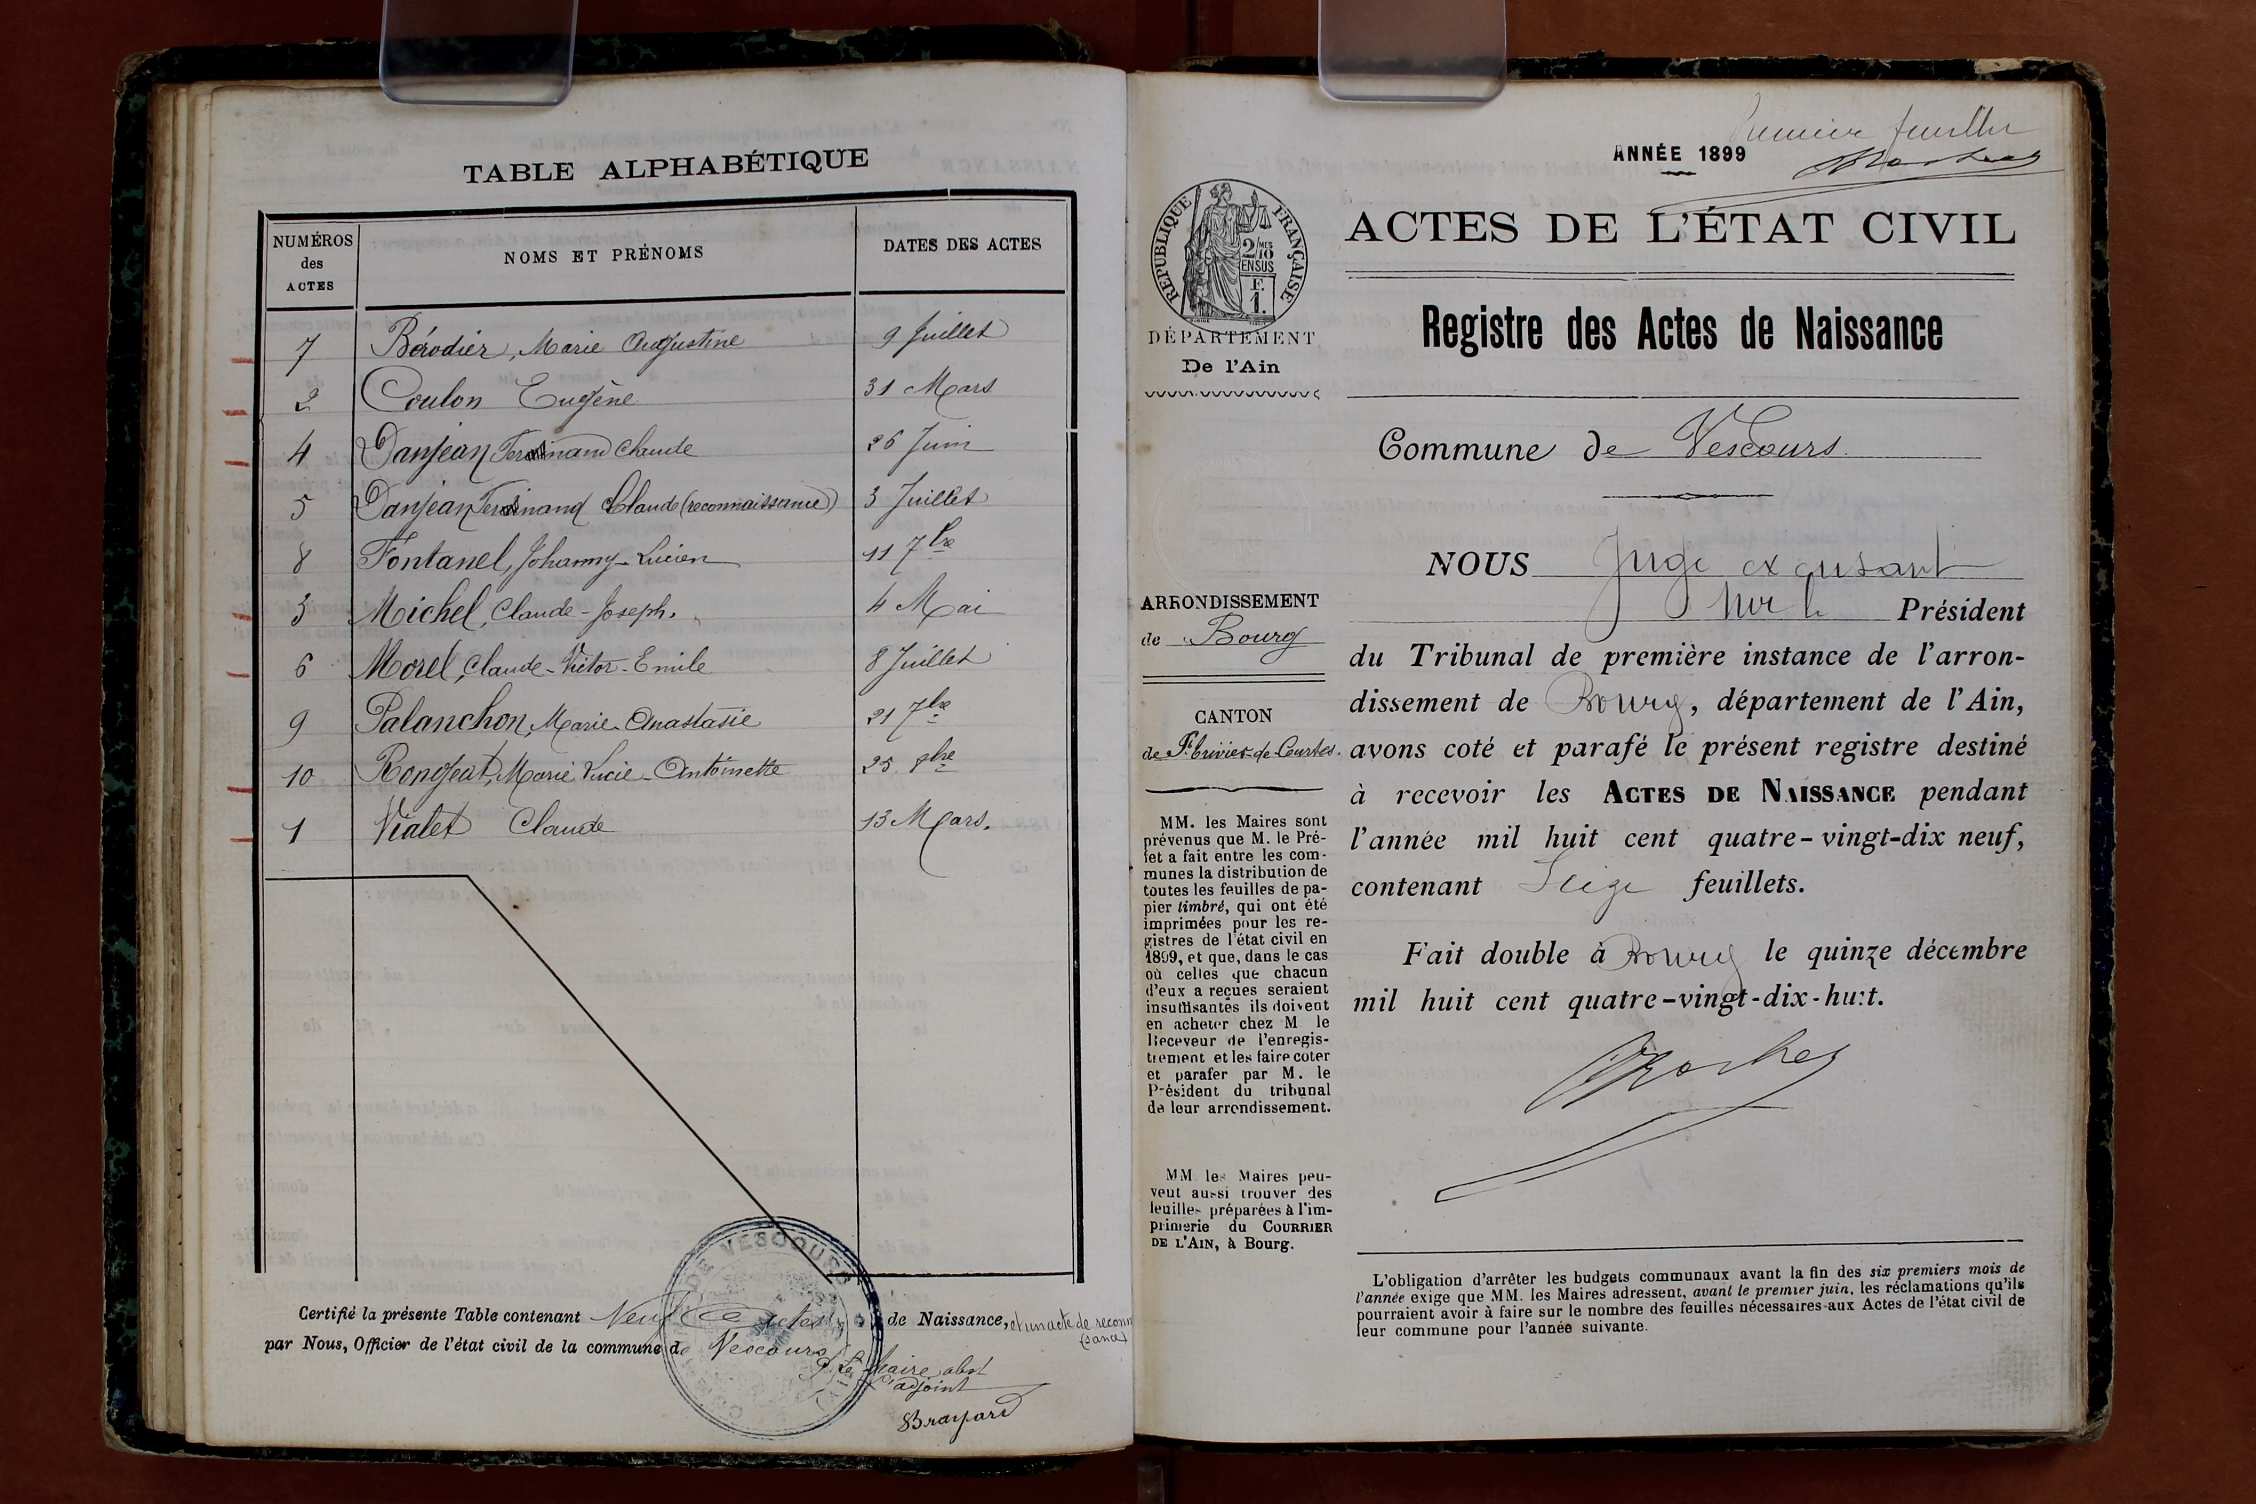 TABLE ALPHABÉTIQUE
NUMÉROS des ACTES
NOMS ET PRÉNOMS
DATES DES ACTES
7 Bérodier, Marie Augustine 9 Juillet
2 Coulon Eugène 31 Mars
4 Danjean Ferdinand Claude 26 Juin
5 Danjean Ferdinand Claude (reconnaissance) 3 Juillet
8 Fontanel, Johanny-Lucien 11 7bre
3 Michel, Claude-Joseph. 4 Mai
6 Morel, Claude-Victor-Emile 8 Juillet
9 Palanchon, Marie-Anastasie 21 7bre
10 Rongeat, Marie Lucie-Antoinette 25 8bre
1 Vialet Claude 13 Mars.
Certifié la présente Table contenant Neuf actes de Naissance, et un acte de reconn
(sance)
par Nous, Officier de l'état civil de la commune de Vescours
P. Le Maire abst
l'adjoint
Brayard
DE VESCOURS
Premier feuillet
ANNÉE 1899
RÉPUBLIQUE FRANÇAISE
2/10 MES
EN SUS
F.
1.
ACTES DE L'ÉTAT CIVIL
DÉPARTEMENT
De l'Ain
Registre des Actes de Naissance
Commune de Vescours
ARRONDISSEMENT
de Bourg
CANTON
de St Trivier-de-Courtes.
MM. les Maires sont
prévenus que M. le Pré-
fet a fait entre les com-
munes la distribution de
toutes les feuilles de pa-
pier timbré, qui ont été
imprimées pour les re-
gistres de l'état civil en
1899, et que, dans le cas
où celles que chacun
d'eux a reçues seraient
insuffisantes ils doivent
en acheter chez M le
Receveur de l'enregis-
trement et les faire coter
et parafer par M. le
Président du tribunal
de leur arrondissement.
MM les Maires peu-
vent aussi trouver des
feuilles préparées à l'im-
primerie du COURRIER
DE L'AIN, à Bourg.
NOUS Juge ex cusant
Mr le Président
du Tribunal de première instance de l'arron-
dissement de Bourg, département de l'Ain,
avons coté et parafé le présent registre destiné
à recevoir les ACTES DE NAISSANCE pendant
l'année mil huit cent quatre-vingt-dix neuf,
contenant Seize feuillets.
Fait double à Bourg le quinze décembre
mil huit cent quatre-vingt-dix-huit.
L'obligation d'arrêter les budgets communaux avant la fin des six premiers mois de
l'année exige que MM. les Maires adressent, avant le premier juin, les réclamations qu'ils
pourraient avoir à faire sur le nombre des feuilles nécessaires aux Actes de l'état civil de
leur commune pour l'année suivante.